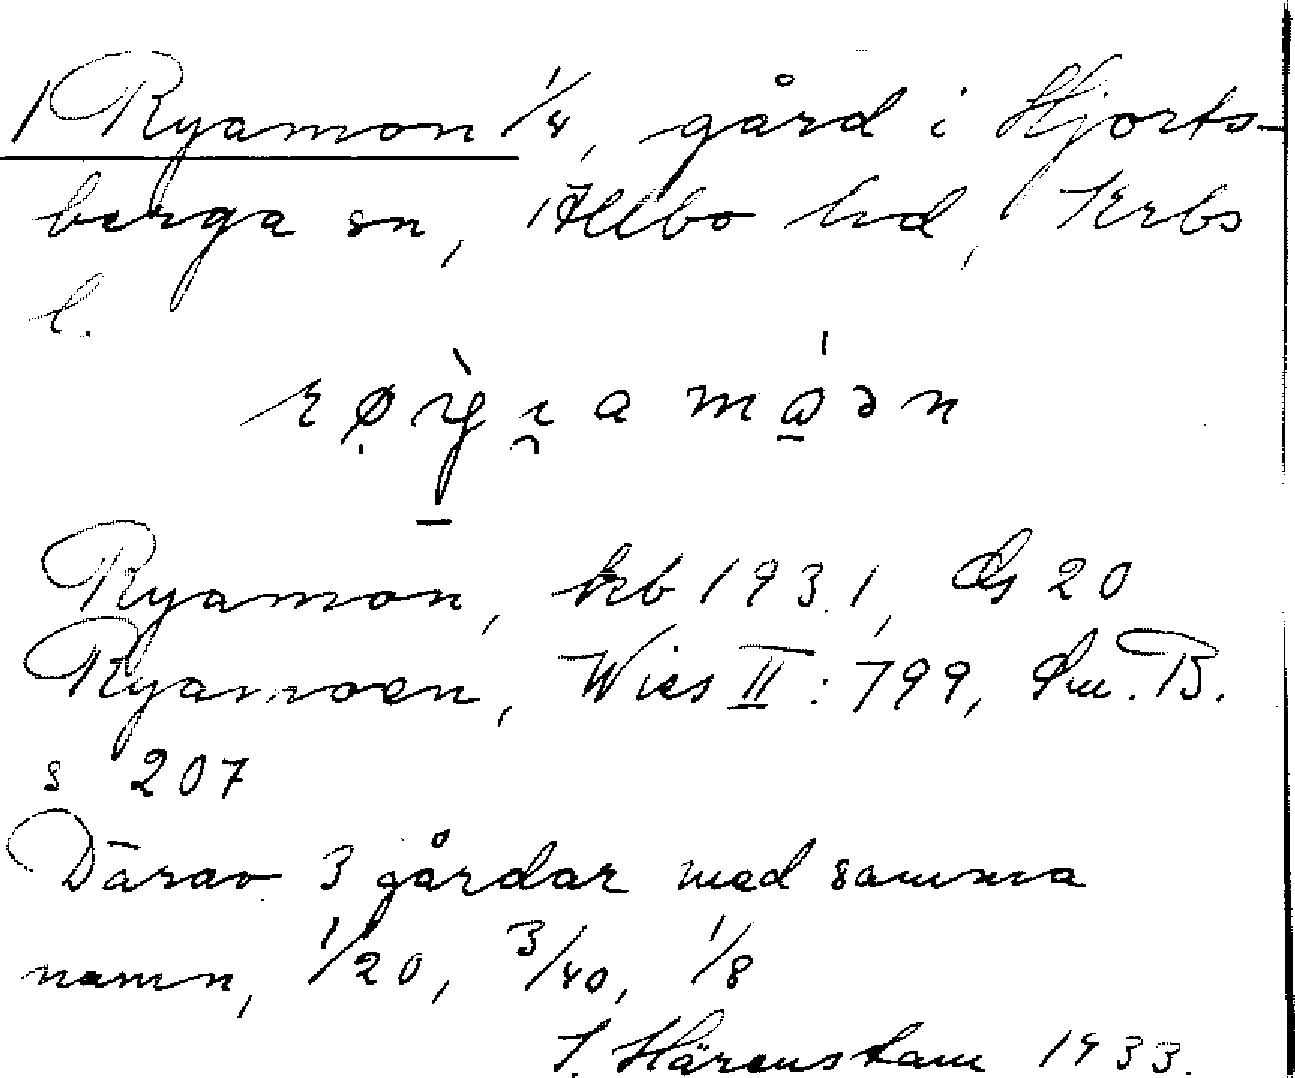 1 Ryamon 1/4, gård i Hjorts-
berga sn, Allbo hd, Krbs
l.
Ryamon, krb 1931, ds 20
Ryamoen, Wies II: 799, Sm. B.
s 207
Därav 3 gårdar med samma
namn, 1/20, 3/40, 1/8
Härenstam 1933.